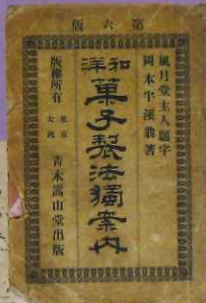 版六第
風月堂主人題字
岡本半溪翁著
和洋
菓子製法獨案内
版權所有
東京
大阪
青木嵩山堂出版